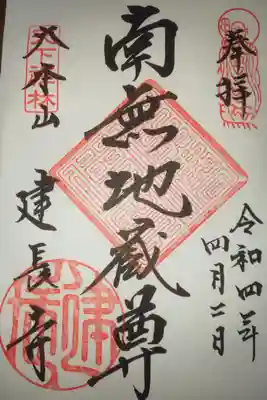 奉拝
令和四年
四月二日
南無地蔵尊
天下禅林
大本山
建長寺